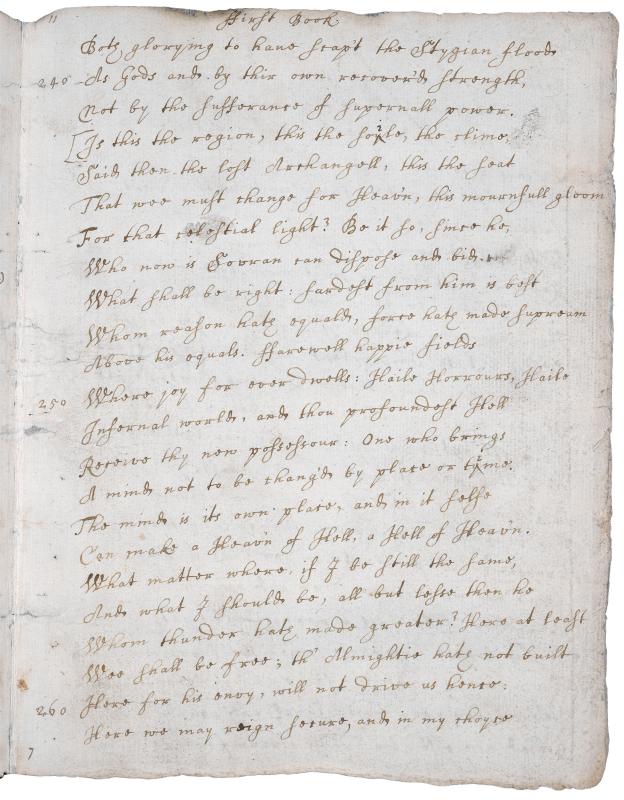 11
First Book.
Both glorying to have scap't the Stygian flood
240 As Gods and by thir own recover'd strength,
Not by the sufferance of supernall power.
[Is this the region, this the soile, the clime,
Said then the lost Archangell, this the seat
That wee must change for Heav'n, this mournfull gloom
For that celestial light? Be it so, since he,
Who now is Sovran can dispose and bid
What shall be right: fardest from him is best
Whom reason hath equald, force hath made supream
Above his equals. ffarewell happie fields
250 Where joy for ever dwells: Haile Horrours, Haile
Infernal world, and thou profoundest Hell
Receive thy new possessour: One who brings
A mind not to be chang'd by place or time.
The mind is its own place, and in it selfe
Can make a Heav'n of Hell, a Hell of Heav'n.
What matter where, if I be still the same,
And what I should be, all but lesse then he
Whom thunder hath made greater? Here at least
Wee shall be free; th' Almightie hath not built
260 Here for his envy, will not drive us hence:
Here we may reign secure, and in my choyce
7